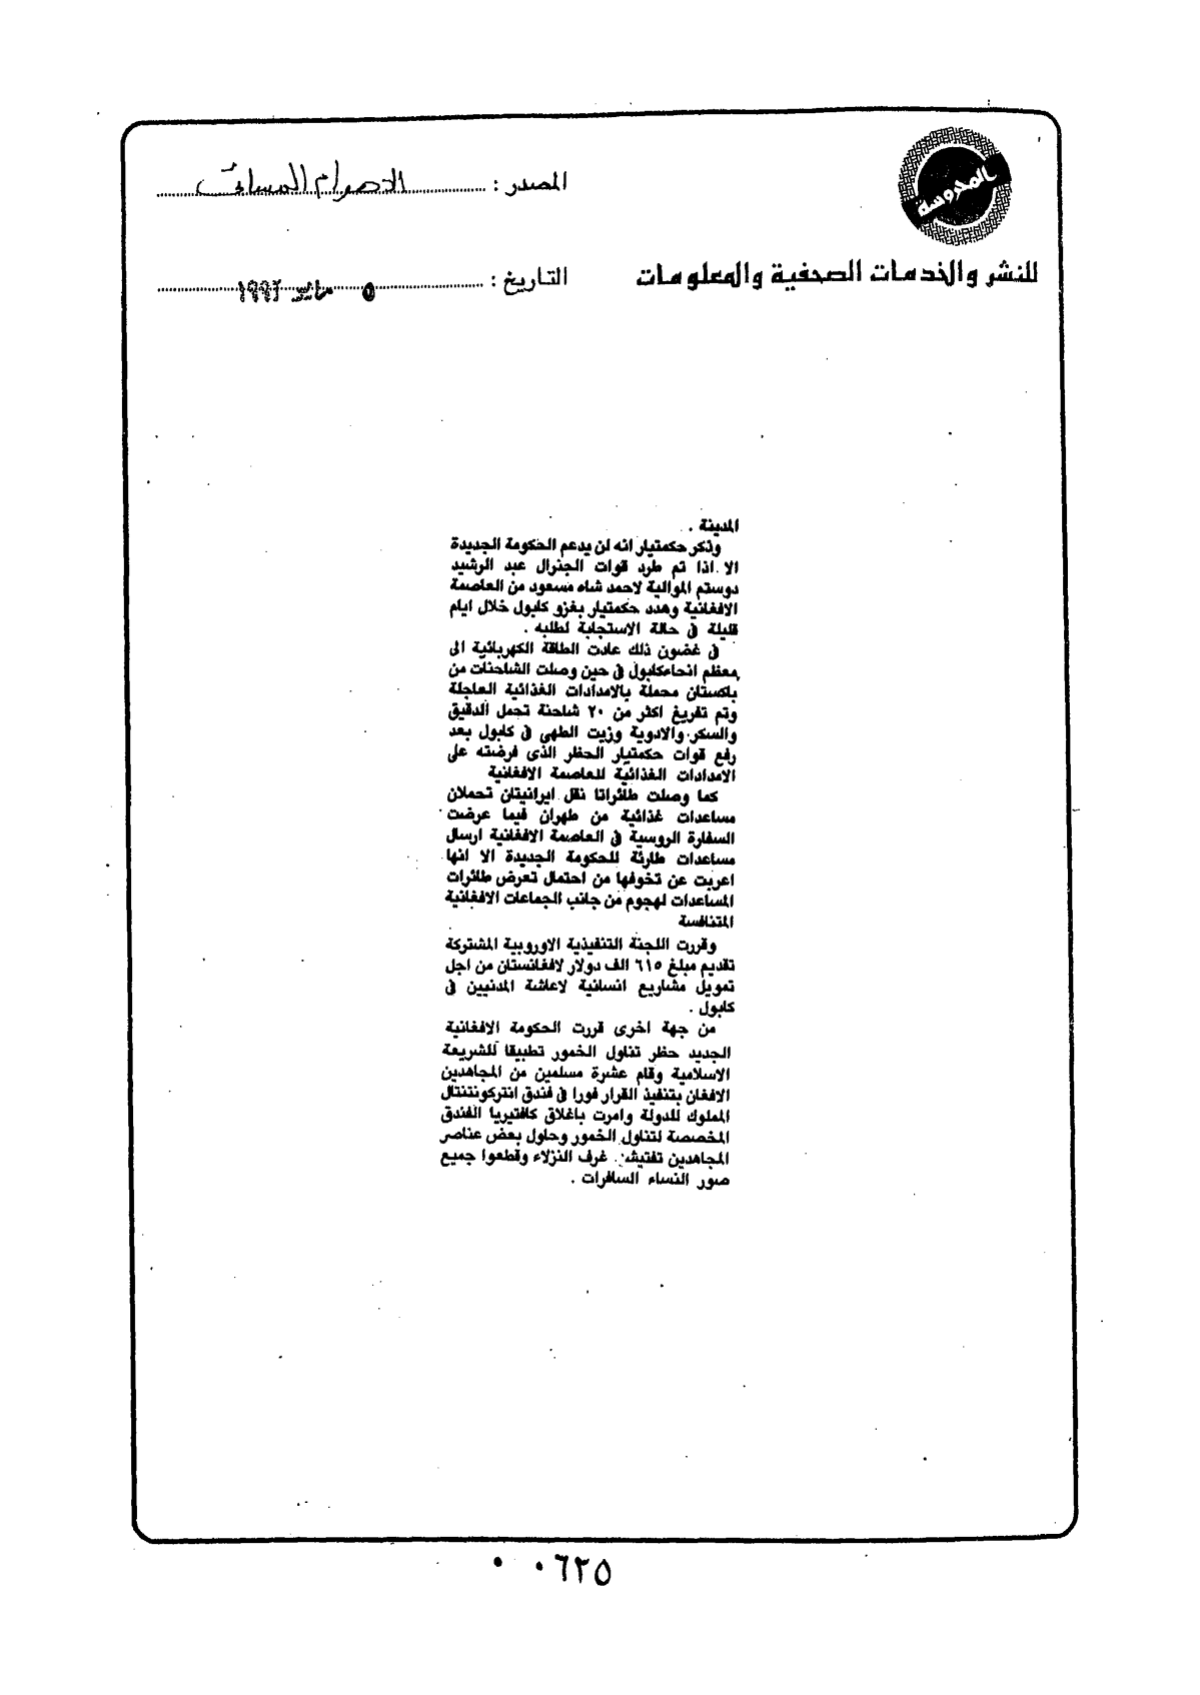 المحروسة
للنشر والخدمات الصحفية والمعلومات
المصدر : الاهرام المسائى
التاريخ : ٥ مايو ١٩٩٢
المدينة .
وذكر حكمتيار انه لن يدعم الحكومة الجديدة
الا اذا تم طرد قوات الجنرال عبد الرشيد
دوستم الموالية لاحمد شاه مسعود من العاصمة
الافغانية وهدد حكمتيار بغزو كابول خلال ايام
قليلة فى حالة الاستجابة لطلبه .
فى غضون ذلك عادت الطاقة الكهربائية الى
معظم انحاءكابول فى حين وصلت الشاحنات من
باكستان محملة بالامدادات الغذائية العاجلة
وتم تفريغ اكثر من ٢٠ شاحنة تحمل الدقيق
والسكر والادوية وزيت الطهى فى كابول بعد
رفع قوات حكمتيار الحظر الذى فرضته على
الامدادات الغذائية للعاصمة الافغانية
كما وصلت طائراتا نقل ايرانيتان تحملان
مساعدات غذائية من طهران فيما عرضت
السفارة الروسية فى العاصمة الافغانية ارسال
مساعدات طارئة للحكومة الجديدة الا انها
اعربت عن تخوفها من احتمال تعرض طائرات
المساعدات لهجوم من جانب الجماعات الافغانية
المتنافسة
وقررت اللجنة التنفيذية الاوروبية المشتركة
تقديم مبلغ ٦١٥ الف دولار لافغانستان من اجل
تمويل مشاريع انسانية لاعاشة المدنيين فى
كابول .
من جهة اخرى قررت الحكومة الافغانية
الجديد حظر تناول الخمور تطبيقا للشريعة
الاسلامية وقام عشرة مسلمين من المجاهدين
الافغان بتنفيذ القرار فورا فى فندق انتركونتننتال
المملوك للدولة وامرت باغلاق كافتيريا الفندق
المخصصة لتناول الخمور وحاول بعض عناصر
المجاهدين تفتيش غرف النزلاء وقطعوا جميع
صور النساء السافرات .
٠٠٦٢٥